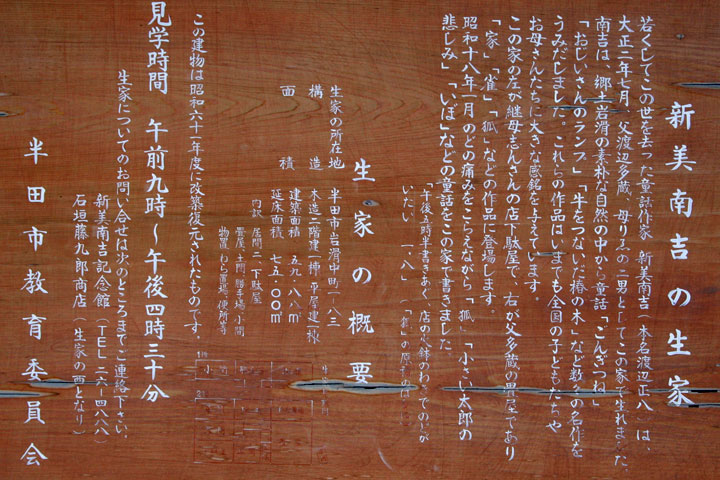 新美南吉の生家
若くしてこの世を去った童話作家 新美南吉（本名渡辺正八）は、
大正二年七月、父渡辺多蔵、母りゑの二男としてこの家で生れました。
南吉は、郷土岩滑の素朴な自然の中から童話「ごんぎつね」
「おじいさんのランプ」「牛をつないだ椿の木」など数々の名作を
うみだしました。これらの作品はいまでも全国の子どもたちや
お母さんたちに大きな感銘を与えています。
この家の左が継母志んさんの店下駄屋で、右が父多蔵の畳屋であり
「家」「雀」「狐」などの作品に登場します。
昭和十八年一月のどの痛みをこらえながら「狐」「小さい太郎の
悲しみ」「いぼ」などの童話をこの家で書きました。
「午後三時半書きあぐ。店の火鉢のわきで。のどが
いたい。一、八」
生家の概要
生家の所在地 半田市岩滑中町一-八三
構造 木造二階建一棟・平屋建一棟
面積 建築面積 五九・八八㎡
延床面積 七五・〇〇㎡
内訳 居間二 下駄屋
畳屋 土間 勝手場 小間
物置 わら置場 便所等
この建物は昭和六十二年度に改築復元されたものです。
見学時間 午前九時～午後四時三十分
生家についてのお問い合せは次のところまでご連絡下さい。
新美南吉記念館（TEL 二六-四八八八）
石垣藤九郎商店（生家の西となり）
半田市教育委員会